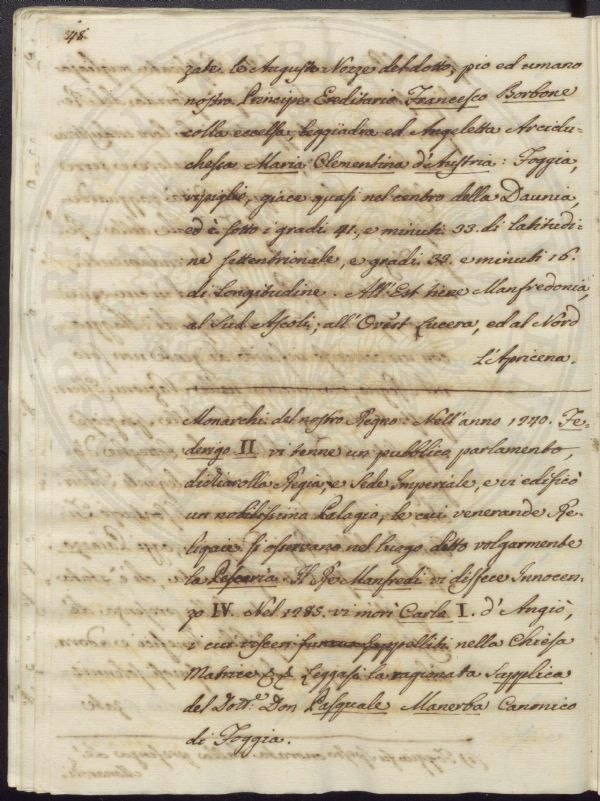 48.
zate le Auguste Nozze del dotto, pio ed umano
nostro Principe Ereditario Francesco Borbone
colla eccelsa, leggiadra ed Angeletta Arcidu-
chessa Maria Clementina d'Austria: Foggia,
ripiglio, giace quasi nel centro della Daunia,
ed è sotto i gradi 41., e minuti 33. di latitudi-
ne settentrionale, e gradi 33. e minuti 16.
di Longitudine. All'Est tiene Manfredonia,
al Sud Ascoli; all'Ovest Lucera, ed al Nord
L'Apricena.
Monarchi del nostro Regno: Nell'anno 1240. Fe-
derigo II vi tenne un pubblico parlamento,
dichiarolla Regia, e Sede Imperiale, e vi edificò
un nobilissimo Palagio, le cui venerande Re-
liquie si osservano nel luogo detto volgarmente
la Pescaria. Il Re Manfredi vi disfece Innocen-
zo IV. Nel 1285. vi morì Carlo I. d'Angiò,
i cui visceri furono seppelliti nella Chiesa
Matrice &c. Leggasi la ragionata Supplica
del Dott.e Don Pasquale Manerba Canonico
di Foggia.